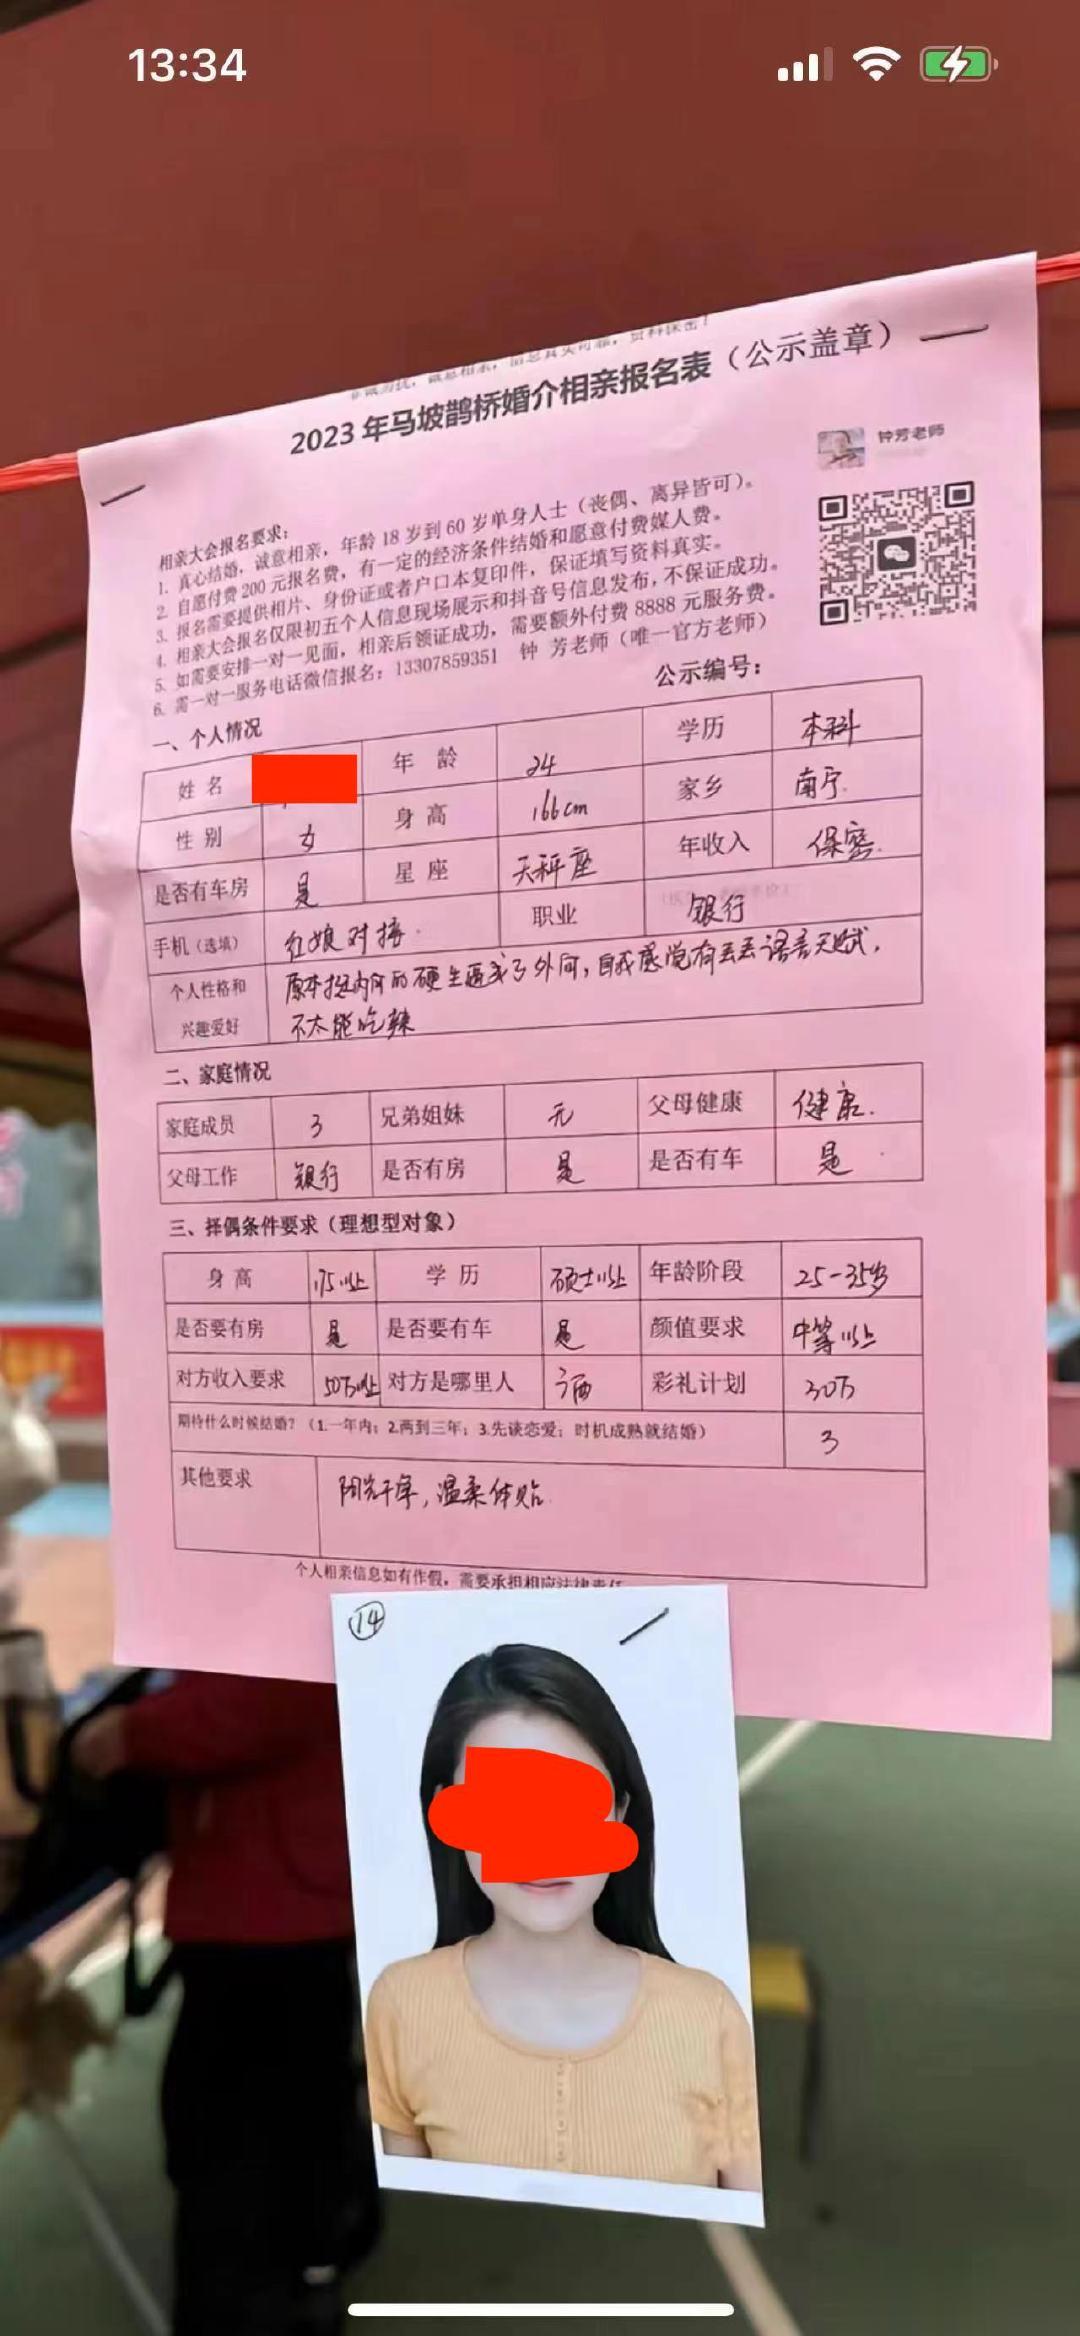 13:34
2023年马坡鹊桥婚介相亲报名表（公示盖章）
钟芳老师
相亲大会报名要求：
1. 真心结婚，诚意相亲，年龄18岁到60岁单身人士（丧偶、离异皆可）。
2. 自愿付费200元报名费，有一定的经济条件结婚和愿意付费媒人费。
3. 报名需要提供相片、身份证或者户口本复印件，保证填写资料真实。
4. 相亲大会报名仅限初五个人信息现场展示和抖音号信息发布，不保证成功。
5. 如需要安排一对一见面，相亲后领证成功，需要额外付费8888元服务费。
6. 需一对一服务电话微信报名：13307859351 钟 芳老师（唯一官方老师）
公示编号：
一、个人情况
姓名 年龄 24 学历 本科
性别 女 身高 166cm 家乡 南宁.
是否有车房 是 星座 天秤座 年收入 保密.
手机（选填） 红娘对接. 职业 银行
个人性格和兴趣爱好 原本挺内向的硬生逼成了外向，自我感觉有丢丢语言天赋，
不太能吃辣
二、家庭情况
家庭成员 3 兄弟姐妹 无 父母健康 健康.
父母工作 银行 是否有房 是 是否有车 是
三、择偶条件要求（理想型对象）
身高 175以上 学历 硕士以上 年龄阶段 25-35岁
是否要有房 是 是否要有车 是 颜值要求 中等以上
对方收入要求 50万以上 对方是哪里人 广西 彩礼计划 30万
期待什么时候结婚？（1.一年内；2.两到三年；3.先谈恋爱；时机成熟就结婚） 3
其他要求 阳光干净，温柔体贴.
个人相亲信息如有作假，需要承担相应法律责任
14